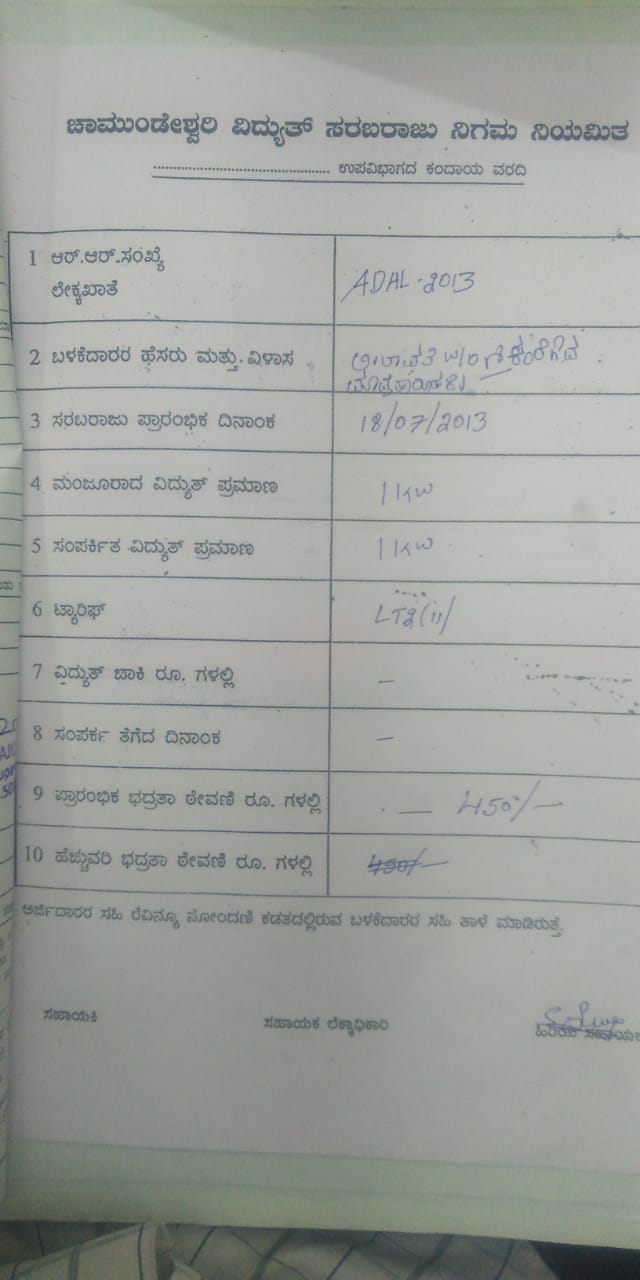 ಚಾಮುಂಡೇಶ್ವರಿ ವಿದ್ಯುತ್ ಸರಬರಾಜು ನಿಗಮ ನಿಯಮಿತ
............................................. ಉಪವಿಭಾಗದ ಕಂದಾಯ ವರದಿ
1 ಆರ್.ಆರ್.ಸಂಖ್ಯೆ
ಲೇಕ್ಕಖಾತೆ
ADAL-2013
2 ಬಳಕೆದಾರರ ಹೆಸರು ಮತ್ತು ವಿಳಾಸ
W/O
3 ಸರಬರಾಜು ಪ್ರಾರಂಭಿಕ ದಿನಾಂಕ 18/07/2013
4 ಮಂಜೂರಾದ ವಿದ್ಯುತ್ ಪ್ರಮಾಣ 1 KW
5 ಸಂಪರ್ಕಿತ ವಿದ್ಯುತ್ ಪ್ರಮಾಣ 1 KW
6 ಟ್ಯಾರಿಫ್ LT2(ii)
7 ವಿದ್ಯುತ್ ಬಾಕಿ ರೂ. ಗಳಲ್ಲಿ –
8 ಸಂಪರ್ಕ ತೆಗೆದ ದಿನಾಂಕ –
9 ಪ್ರಾರಂಭಿಕ ಭದ್ರತಾ ಠೇವಣಿ ರೂ. ಗಳಲ್ಲಿ — 450/-
10 ಹೆಚ್ಚುವರಿ ಭದ್ರತಾ ಠೇವಣಿ ರೂ. ಗಳಲ್ಲಿ 450/-
ಅರ್ಜಿದಾರರ ಸಹಿ ರೆವಿನ್ಯೂ ನೋಂದಣಿ ಕಡತದಲ್ಲಿರುವ ಬಳಕೆದಾರರ ಸಹಿ ತಾಳೆ ಮಾಡಿರುತ್ತೆ.
ಸಹಾಯಕಿ ಸಹಾಯಕ ಲೆಕ್ಕಾಧಿಕಾರಿ ಹಿರಿಯ